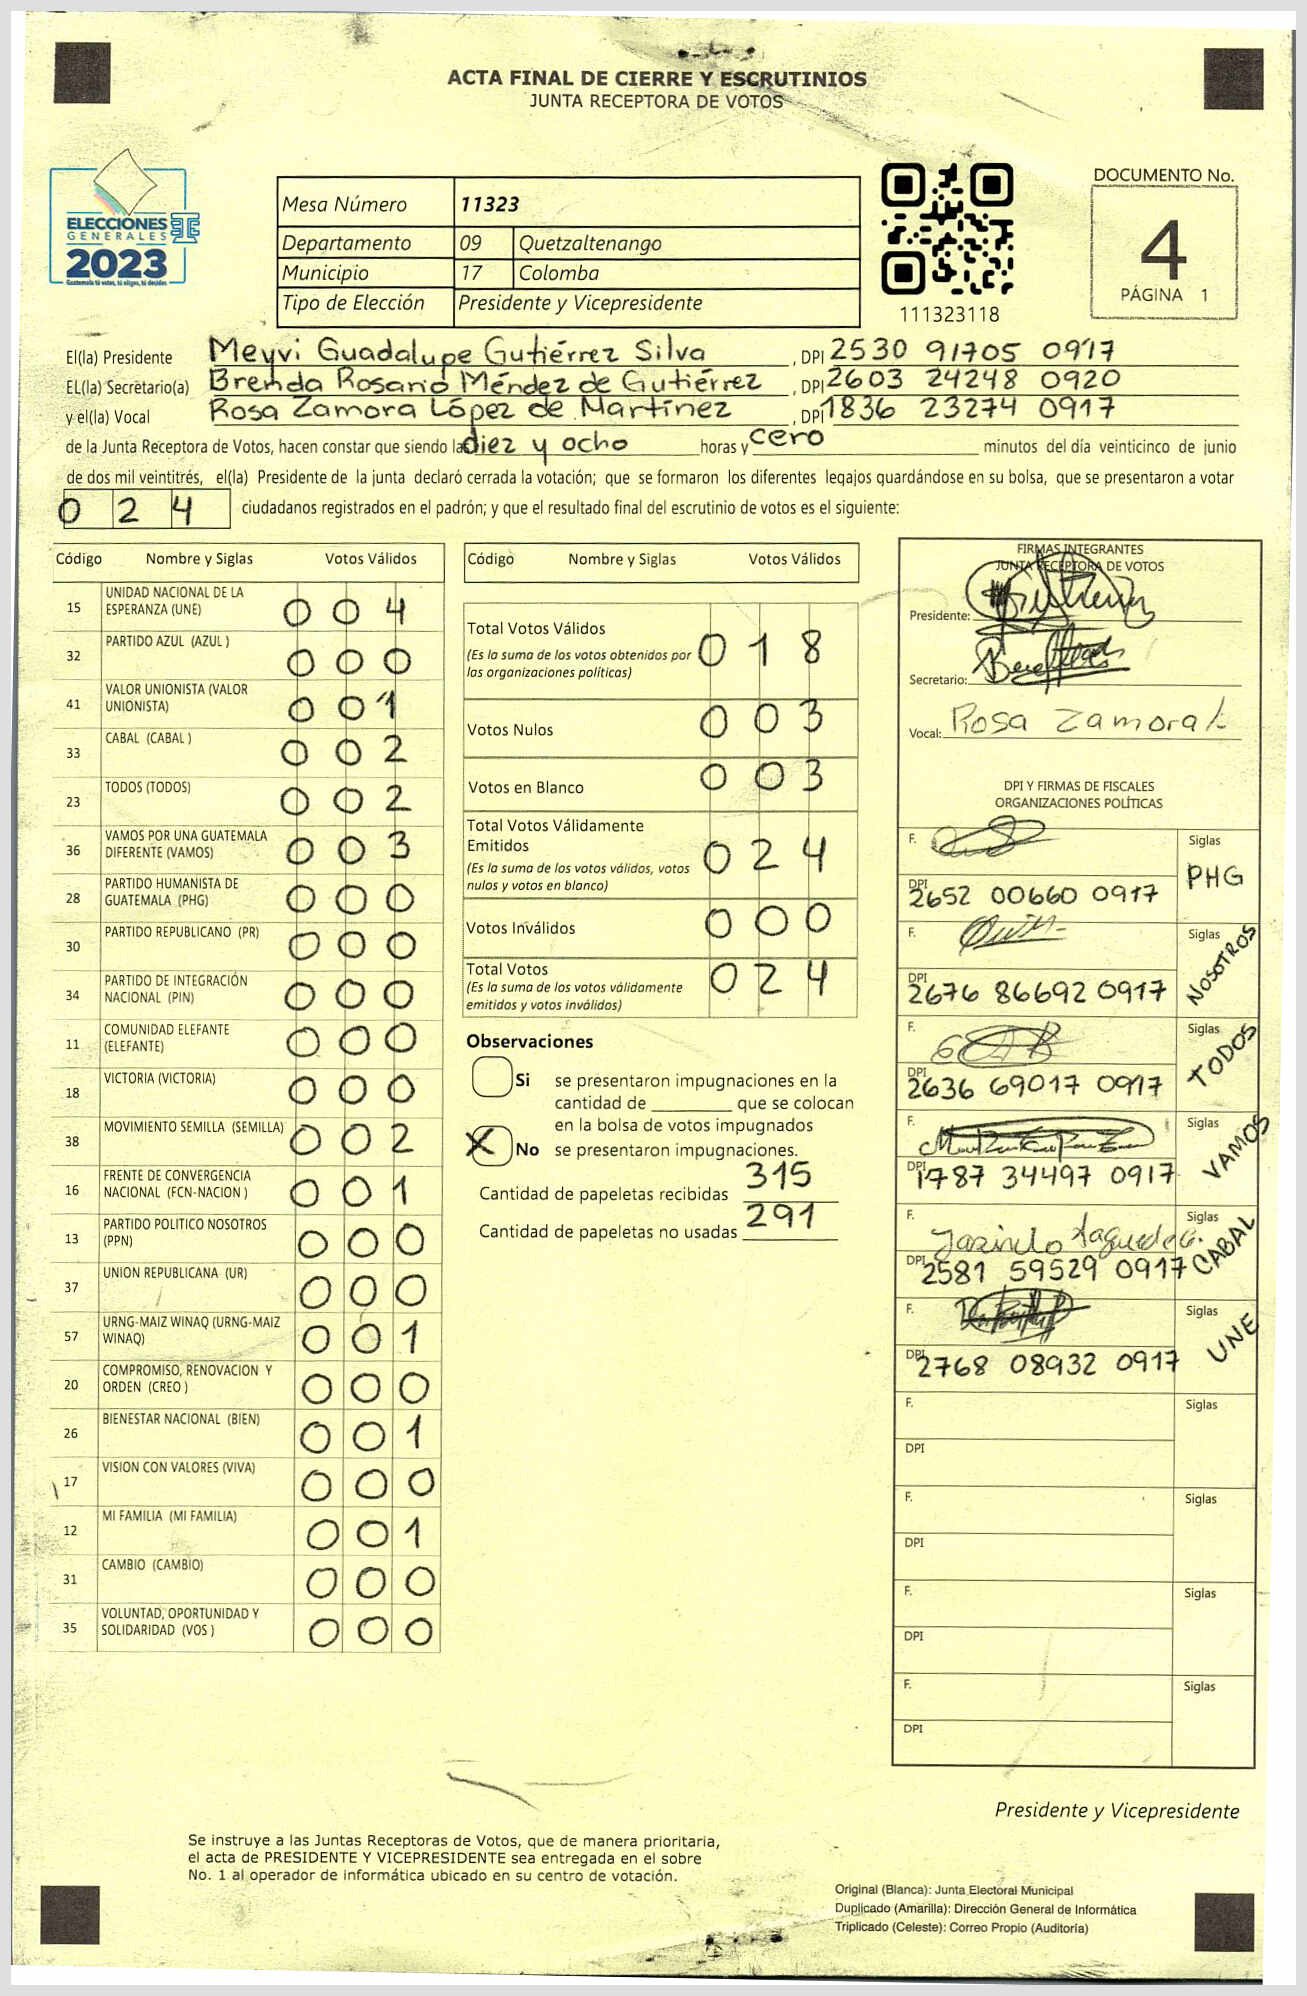 ACTA FINAL DE CIERRE Y ESCRUTINIOS
JUNTA RECEPTORA DE VOTOS
ELECCIONES
GENERALES
2023
Guatemala tú votas, tú eliges, tú decides
Mesa Número 11323
Departamento 09 Quetzaltenango
Municipio 17 Colomba
Tipo de Elección Presidente y Vicepresidente
111323118
DOCUMENTO No.
4
PÁGINA 1
El(la) Presidente Meyvi Guadalupe Gutiérrez Silva, DPI 2530 91705 0917
EL(la) Secretario(a) Brenda Rosario Méndez de Gutiérrez, DPI 2603 24248 0920
y el(la) Vocal Rosa Zamora López de Martínez, DPI 1836 23274 0917
de la Junta Receptora de Votos, hacen constar que siendo las diez y ocho horas y cero minutos del día veinticinco de junio
de dos mil veintitrés, el(la) Presidente de la junta declaró cerrada la votación; que se formaron los diferentes legajos guardándose en su bolsa, que se presentaron a votar
0 2 4 ciudadanos registrados en el padrón; y que el resultado final del escrutinio de votos es el siguiente:
Código Nombre y Siglas Votos Válidos
15 UNIDAD NACIONAL DE LA ESPERANZA (UNE) 0 0 4
32 PARTIDO AZUL (AZUL ) 0 0 0
41 VALOR UNIONISTA (VALOR UNIONISTA) 0 0 1
33 CABAL (CABAL ) 0 0 2
23 TODOS (TODOS) 0 0 2
36 VAMOS POR UNA GUATEMALA DIFERENTE (VAMOS) 0 0 3
28 PARTIDO HUMANISTA DE GUATEMALA (PHG) 0 0 0
30 PARTIDO REPUBLICANO (PR) 0 0 0
34 PARTIDO DE INTEGRACIÓN NACIONAL (PIN) 0 0 0
11 COMUNIDAD ELEFANTE (ELEFANTE) 0 0 0
18 VICTORIA (VICTORIA) 0 0 0
38 MOVIMIENTO SEMILLA (SEMILLA) 0 0 2
16 FRENTE DE CONVERGENCIA NACIONAL (FCN-NACION ) 0 0 1
13 PARTIDO POLITICO NOSOTROS (PPN) 0 0 0
37 UNION REPUBLICANA (UR) 0 0 0
57 URNG-MAIZ WINAQ (URNG-MAIZ WINAQ) 0 0 1
20 COMPROMISO, RENOVACION Y ORDEN (CREO ) 0 0 0
26 BIENESTAR NACIONAL (BIEN) 0 0 1
17 VISION CON VALORES (VIVA) 0 0 0
12 MI FAMILIA (MI FAMILIA) 0 0 1
31 CAMBIO (CAMBIO) 0 0 0
35 VOLUNTAD, OPORTUNIDAD Y SOLIDARIDAD (VOS ) 0 0 0
Código Nombre y Siglas Votos Válidos
Total Votos Válidos 0 1 8
(Es la suma de los votos obtenidos por
las organizaciones políticas)
Votos Nulos 0 0 3
Votos en Blanco 0 0 3
Total Votos Válidamente
Emitidos 0 2 4
(Es la suma de los votos válidos, votos
nulos y votos en blanco)
Votos Inválidos 0 0 0
Total Votos 0 2 4
(Es la suma de los votos válidamente
emitidos y votos inválidos)
Observaciones
Si se presentaron impugnaciones en la
cantidad de ________ que se colocan
en la bolsa de votos impugnados
X No se presentaron impugnaciones.
Cantidad de papeletas recibidas 315
Cantidad de papeletas no usadas 291
FIRMAS INTEGRANTES
JUNTA RECEPTORA DE VOTOS
Presidente:
Secretario:
Vocal: Rosa Zamora L
DPI Y FIRMAS DE FISCALES
ORGANIZACIONES POLÍTICAS
F. Siglas PHG
DPI 2652 00660 0917
F. Siglas NOSOTROS
DPI 2676 86692 0917
F. Siglas TODOS
DPI 2636 69017 0917
F. Siglas VAMOS
DPI 1787 34497 0917
F. Siglas CABAL
DPI 2581 59529 0917
F. Siglas UNE
DPI 2768 08932 0917
F. Siglas
DPI
F. Siglas
DPI
F. Siglas
DPI
F. Siglas
DPI
Presidente y Vicepresidente
Se instruye a las Juntas Receptoras de Votos, que de manera prioritaria,
el acta de PRESIDENTE Y VICEPRESIDENTE sea entregada en el sobre
No. 1 al operador de informática ubicado en su centro de votación.
Original (Blanca): Junta Electoral Municipal
Duplicado (Amarilla): Dirección General de Informática
Triplicado (Celeste): Correo Propio (Auditoría)